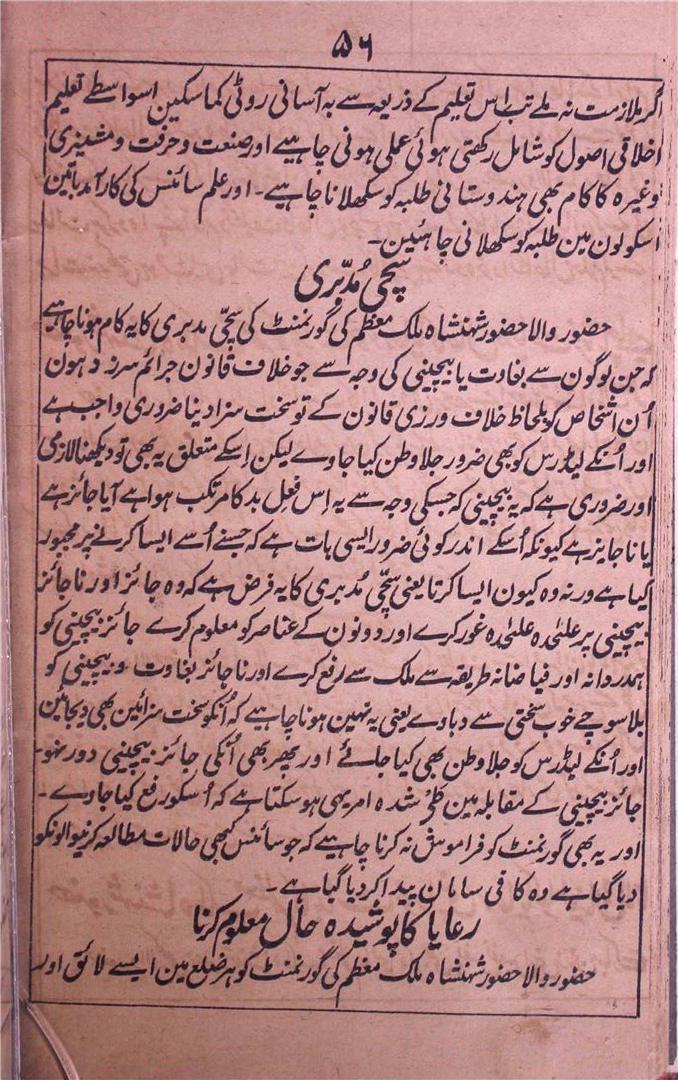 ۵۶
اگر ملازمت نہ ملے تب اس تعلیم کے ذریعہ سے بہ آسانی روٹی کما سکین اسواسطے تعلیم
اخلاقی اصول کو شامل رکھتی ہوئی عملی ہونی چاہیے اور صنعت و حرفت و مشینری
وغیرہ کا کام بھی ہندوستانی طلبہ کو سکھلانا چاہیے۔ اور علم سائنس کی کارآمد باتین
اسکولون مین طلبہ کو سکھلانی چاہئین۔
سچی مُدبّری
حضور والا حضور شہنشاہ ملک معظم کی گورنمنٹ کی سچّی مدبری کا یہ کام ہونا چاہیے
کہ جن لوگون سے بغاوت یا بیچینی کی وجہ سے جو خلاف قانون جرائم سرزد ہون
اُن اشخاص کو بلحاظ خلاف ورزی قانون کے تو سخت سزا دینا ضروری واجب ہے
اور اُنکے لیڈرس کو بھی ضرور جلاوطن کیا جاوے لیکن اِسکے متعلق یہ بھی تو دیکھنا لازمی
اور ضروری ہے کہ یہ بیچینی کہ جسکی وجہ سے یہ اِس فعلِ بد کا مرتکب ہوا ہے آیا جائز ہے
یا ناجایز ہے کیونکہ اُسکے اندر کوئی ضرور ایسی بات ہے کہ جسنے اُسے ایسا کرنے پر مجبور
کیا ہے ورنہ وہ کیون ایسا کرتا یعنی سچّی مُدبری کا یہ فرض ہے کہ وہ جائز اور ناجائز
بیچینی پر علٰحدہ علٰحدہ غور کرے اور دونون کے عناصر کو معلوم کرے جائز بیچینی کو
ہمدردانہ اور فیاضانہ طریقہ سے ملک سے رفع کرے اور ناجائز بغاوت و بیچینی کو
بلا سوچے خوب سختی سے دباوے یعنی یہ نہین ہونا چاہیے کہ اُنکو سخت سزائین بھی دیجائین
اور اُنکے لیڈرس کو جلاوطن بھی کیا جائے اور پھر بھی اُنکی جائز بیچینی دور نہو۔
جائز بیچینی کے مقابلہ مین طے شدہ امر یہی ہو سکتا ہے کہ اُسکو رفع کیا جاوے۔
اور یہ بھی گورنمنٹ کو فراموش نہ کرنا چاہیے کہ جو سائنس کبھی حالات مطالعہ کرنیوالونکو
دیا گیا ہے وہ کافی سامان پیدا کر دیا گیا ہے۔
رعایا کا پوشیدہ حال معلوم کرنا
حضور والا حضور شہنشاہ ملک معظم کی گورنمنٹ کو ہر ضلع مین ایسے لائق اور